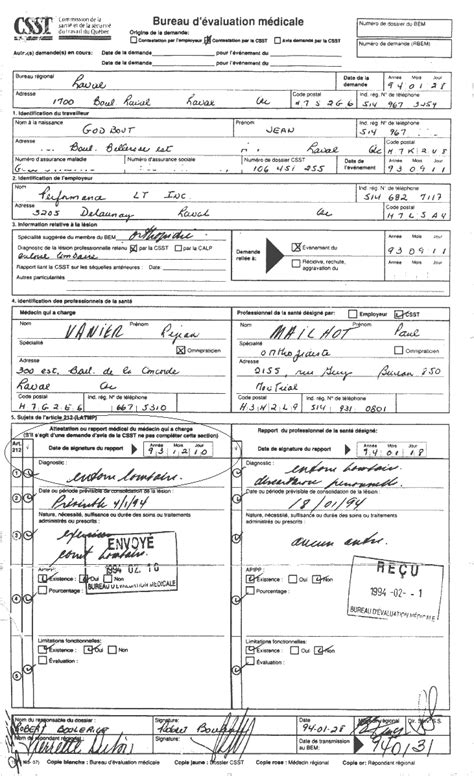 CSST
Commission de la
santé et de la sécurité
du travail du Québec
Bureau d'évaluation médicale
Origine de la demande:
Contestation par l'employeur Contestation par la CSST Avis demandé par la CSST
Numéro de dossier du BEM
Numéro de la demande (RBEM)
Autre(s) demande(s) en cours: Date de la demande pour l'événement du
Date de la demande pour l'événement du
Bureau régional
Laval
Date de la demande
Année Mois Jour
94 01 28
Adresse
1700 Boul Laval Laval Qc
Code postal
H7S 2G6
Ind. rég. N° de téléphone
514 967 3254
1. Identification du travailleur
Nom à la naissance
GODBOUT
Prénom
JEAN
Ind. rég. N° de téléphone
514 967
Adresse
Boul. Bellerose est Laval Qc
Code postal
Numéro d'assurance maladie
Numéro d'assurance sociale
Numéro de dossier CSST
106 451 255
Date de l'événement
Année Mois Jour
93 09 11
2. Identification de l'employeur
Nom
Performance LT INC
Ind. rég. N° de téléphone
514 682 7117
Adresse
3205 Delaunay Laval Qc
Code postal
H7L 5A4
3. Information relative à la lésion
Spécialité suggérée du membre du BEM
orthopédie
Diagnostic de la lésion professionnelle retenu par la CSST par la CALP
entorse lombaire
Rapport liant la CSST sur les séquelles antérieures : Date
Autres particularités
Demande reliée à:
Événement du
Récidive, rechute, aggravation du
Année Mois Jour
93 09 11
4. Identification des professionnels de la santé
Médecin qui a charge
Nom Prénom
VANIER Réjean
Spécialité
Omnipraticien
Adresse
300 est, Boul. de la Concorde
Laval Qc
Code postal Ind. rég. N° de téléphone
H7G 2E6 667 5310
Professionnel de la santé désigné par: Employeur CSST
Nom Prénom
MAILHOT Paul
Spécialité
orthopédiste
Omnipraticien
Adresse
2155, rue Guy Bureau 850
Montréal
Code postal Ind. rég. N° de téléphone
H3H 2L9 514 931 0801
5. Sujets de l'article 212 (LATMP)
Attestation ou rapport médical du médecin qui a charge
(S'il s'agit d'une demande d'avis de la CSST ne pas compléter cette section)
Art. 212
Date de signature du rapport
Année Mois Jour
93 12 10
Rapport du professionnel de la santé désigné:
Date de signature du rapport
Année Mois Jour
94 01 18
1 Diagnostic :
entorse lombaire.
Diagnostic :
entorse lombaire
2 Date ou période prévisible de consolidation de la lésion :
Prévisible 4/1/94
Date ou période prévisible de consolidation de la lésion :
18/01/94
3 Nature, nécessité, suffisance ou durée des soins ou traitements
administrés ou prescrits :
exercices
Nature, nécessité, suffisance ou durée des soins ou traitements
administrés ou prescrits :
aucun autre.
ENVOYÉ
1994 -02- 10
BUREAU D'ÉVALUATION MÉDICALE
REÇU
1994 -02- -1
BUREAU D'ÉVALUATION MÉDICALE
4 AIPIPP :
Existence : Oui Non
Pourcentage :
AIPIPP :
Existence : Oui Non
Pourcentage :
5 Limitations fonctionnelles:
Existence : Oui Non
Évaluation :
Limitations fonctionnelles:
Existence : Oui Non
Évaluation :
Nom du responsable du dossier:
ROBERT BOULERICE
Signature:
Date
94-01-28
Médecin régional
Dir. S.S.S.
Nom du répondant régional
Pierrette Dubois
Signature:
Date de transmission au BEM:
94 01 31
Copie blanche : Bureau d'évaluation médicale Copie jaune : Dossier CSST Copie rose : Médecin régional Copie or: Répondant régional